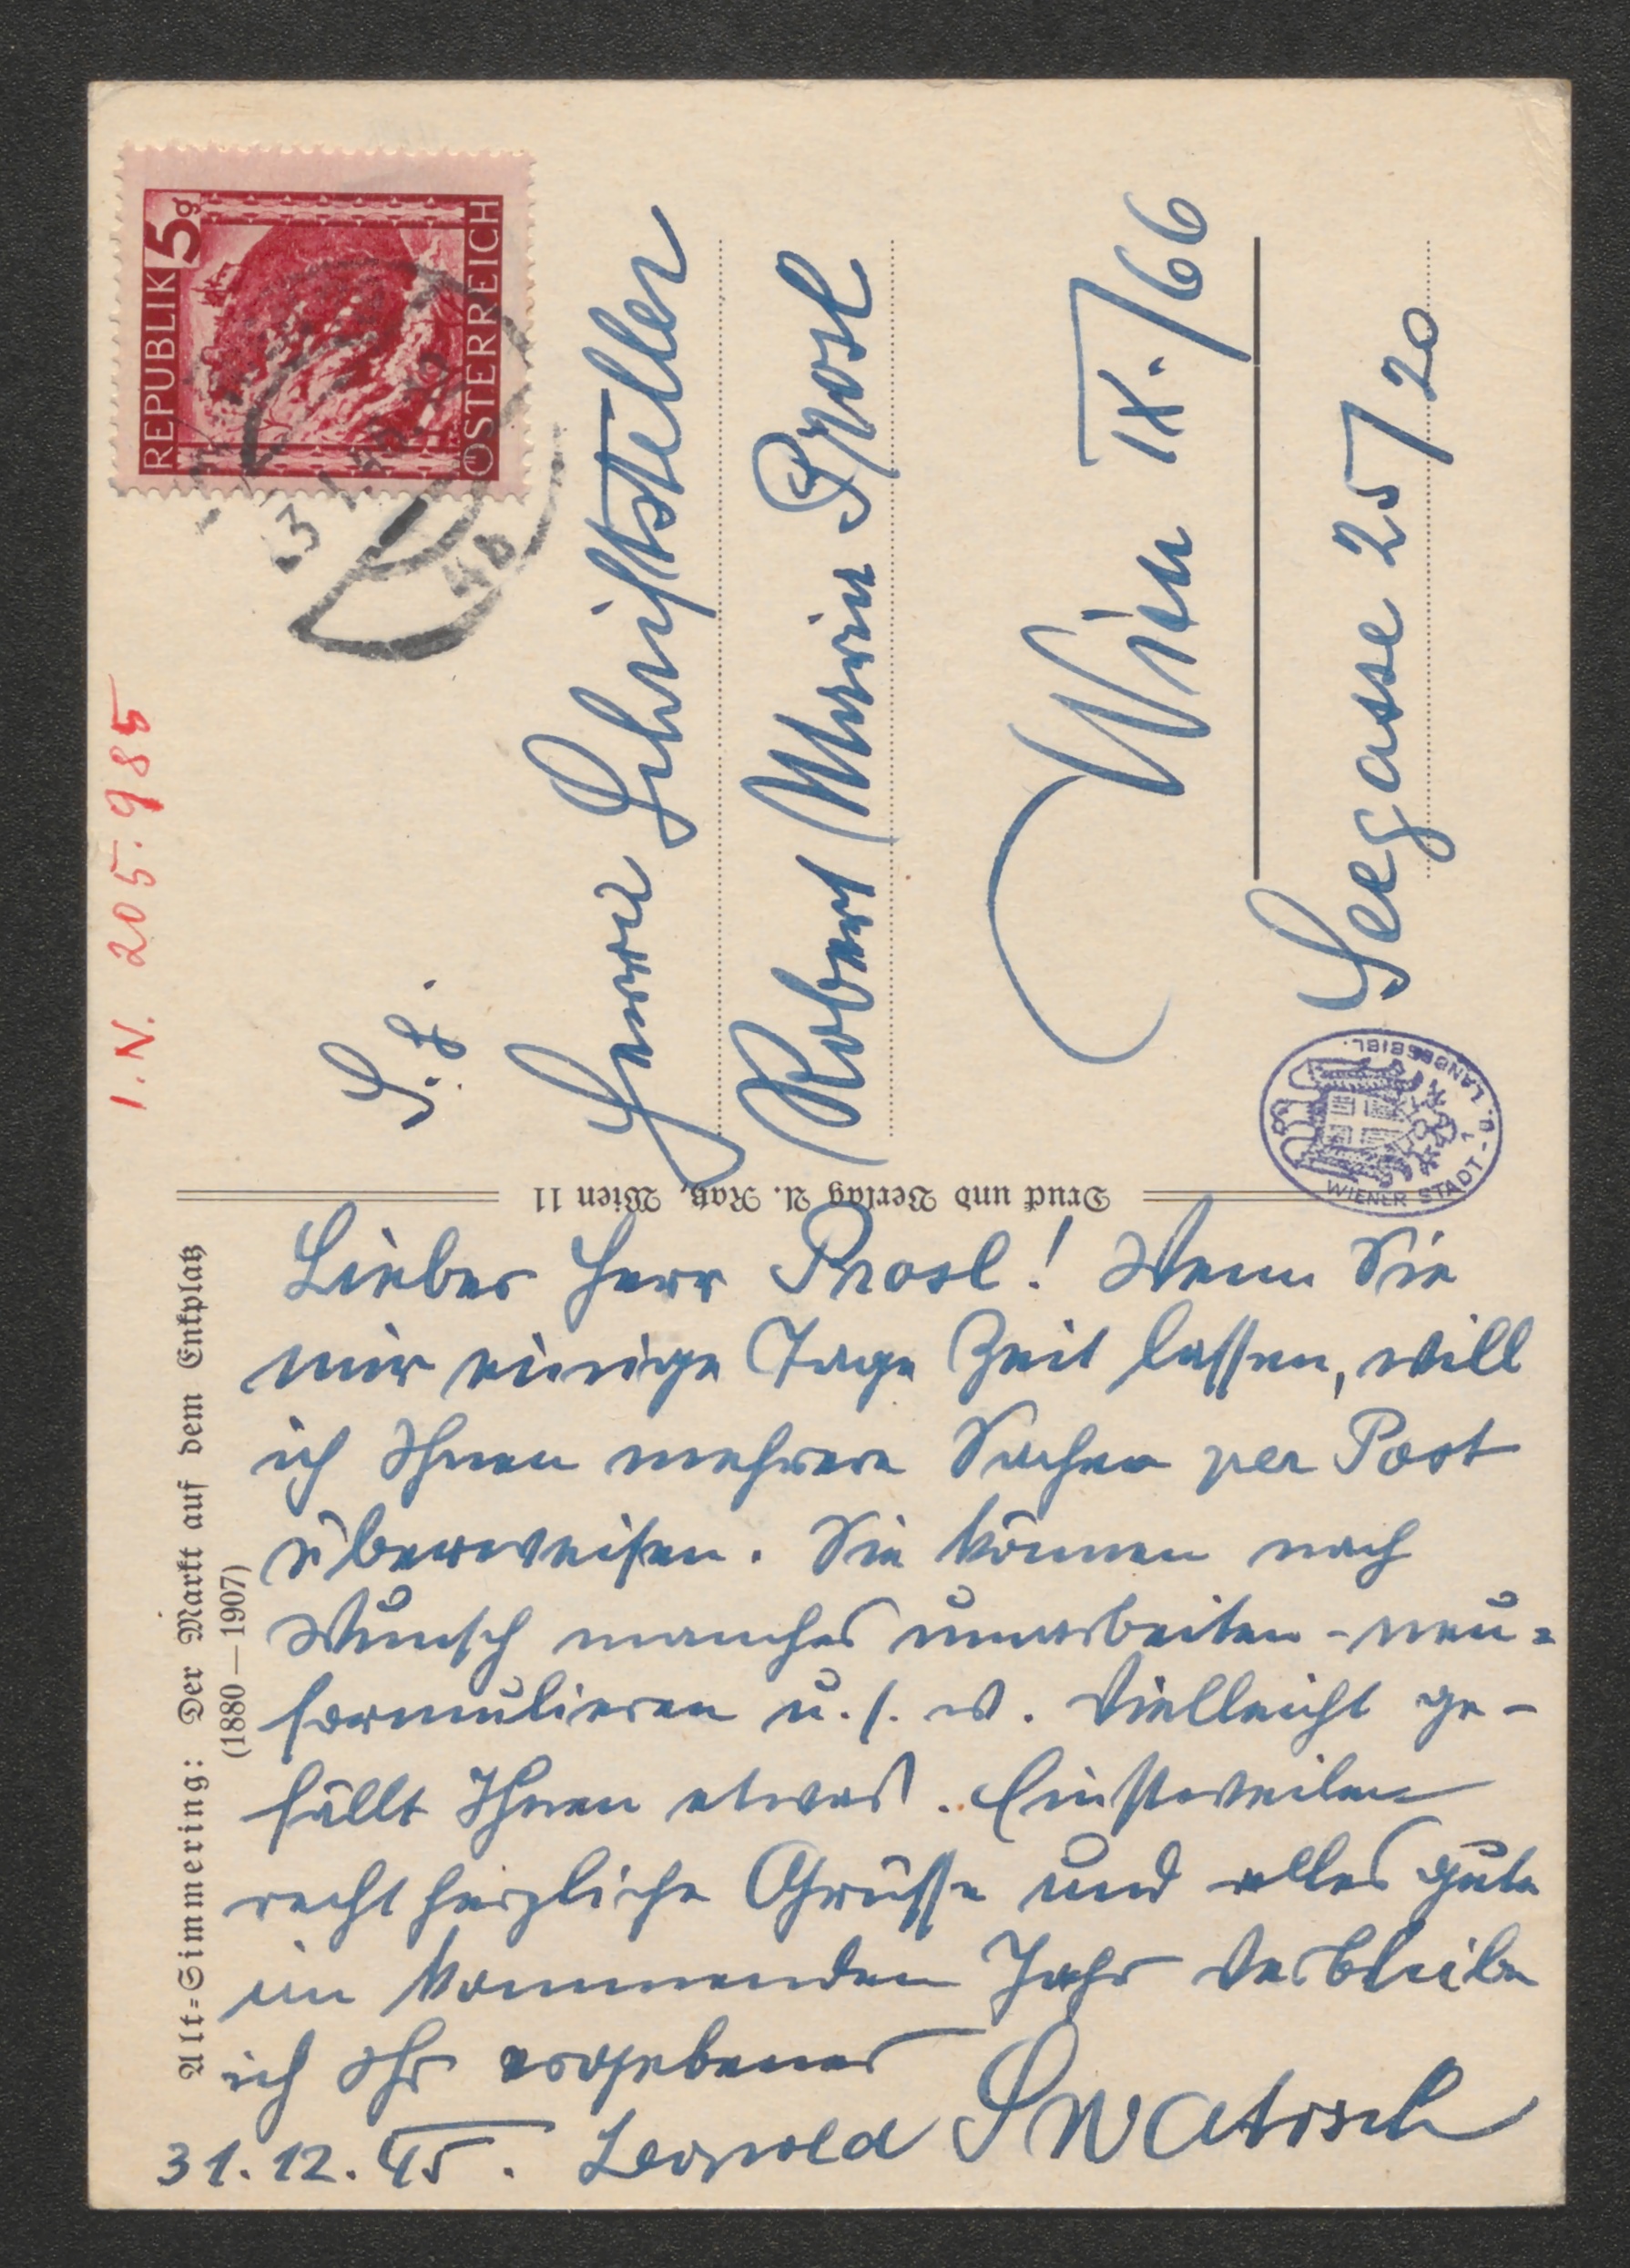 I. N. 205.985
REPUBLIK
5g
ÖSTERREICH
S. g.
Herrn Schriftsteller
Robert Maria Prosl
Wien IX./66
Seegasse 25/20
WIENER STADT- U. LANDESBIBL.
Druck und Verlag A. Katz, Wien 11
Alt-Simmering: Der Markt auf dem Enkplatz
(1880—1907)
Lieber Herr Prosl! Wenn Sie
mir einige Tage Zeit lassen, will
ich Ihnen mehrere Sachen per Post
überweisen. Sie können nach
Wunsch manches umarbeiten - neu=
formulieren u. s. w. Vielleicht ge-
fällt Ihnen etwas. Einstweilen
recht herzliche Grüsse und alles gute
im kommenden Jahr verbleibe
ich Ihr ergebener
31. 12. 45. Leopold Swatosch